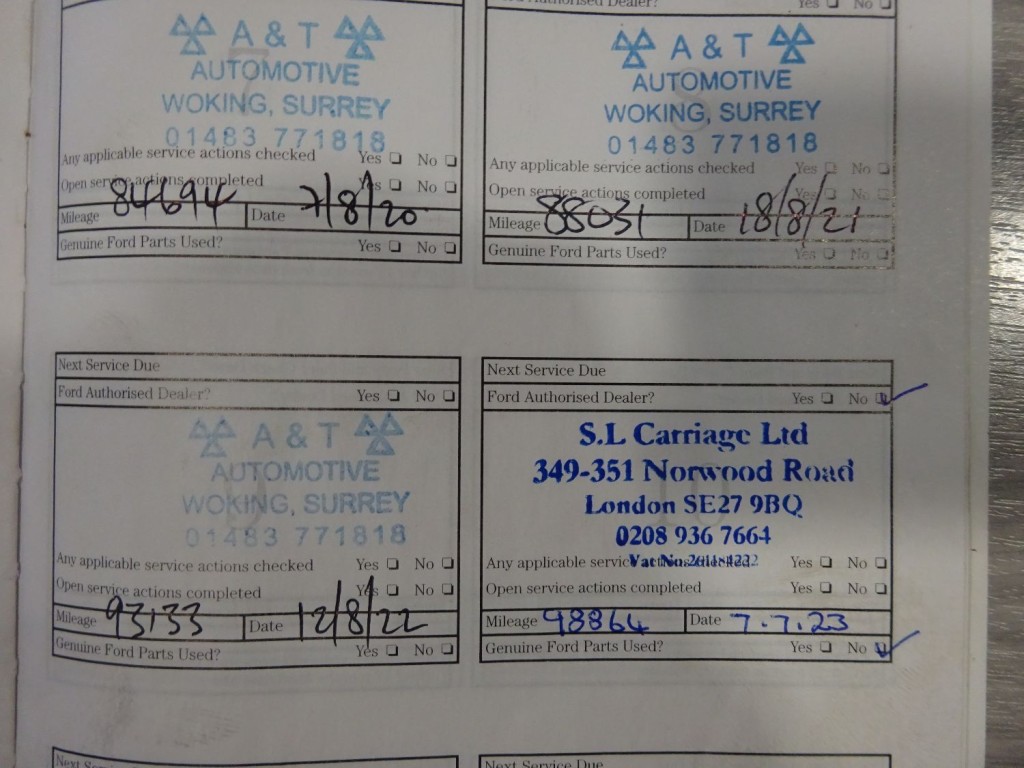 Yes ❑ No ❑
A & T
AUTOMOTIVE
WOKING, SURREY
01483 771818
Any applicable service actions checked Yes ❑ No ❑
Open service actions completed Yes ❑ No ❑
Mileage 84694 Date 7/8/20
Genuine Ford Parts Used? Yes ❑ No ❑
A & T
AUTOMOTIVE
WOKING, SURREY
01483 771818
Any applicable service actions checked Yes ❑ No ❑
Open service actions completed Yes ❑ No ❑
Mileage 88031 Date 18/8/21
Genuine Ford Parts Used? Yes ❑ No ❑
Next Service Due
Ford Authorised Dealer? Yes ❑ No ❑
A & T
AUTOMOTIVE
WOKING, SURREY
01483 771818
Any applicable service actions checked Yes ❑ No ❑
Open service actions completed Yes ❑ No ❑
Mileage 93133 Date 12/8/22
Genuine Ford Parts Used? Yes ❑ No ❑
Next Service Due
Ford Authorised Dealer? Yes ❑ No ❑
S.L Carriage Ltd
349-351 Norwood Road
London SE27 9BQ
0208 936 7664
Vat No.
Any applicable service Yes ❑ No ❑
Open service actions completed Yes ❑ No ❑
Mileage 98864 Date 7.7.23
Genuine Ford Parts Used? Yes ❑ No ❑
Next
Next Service Due